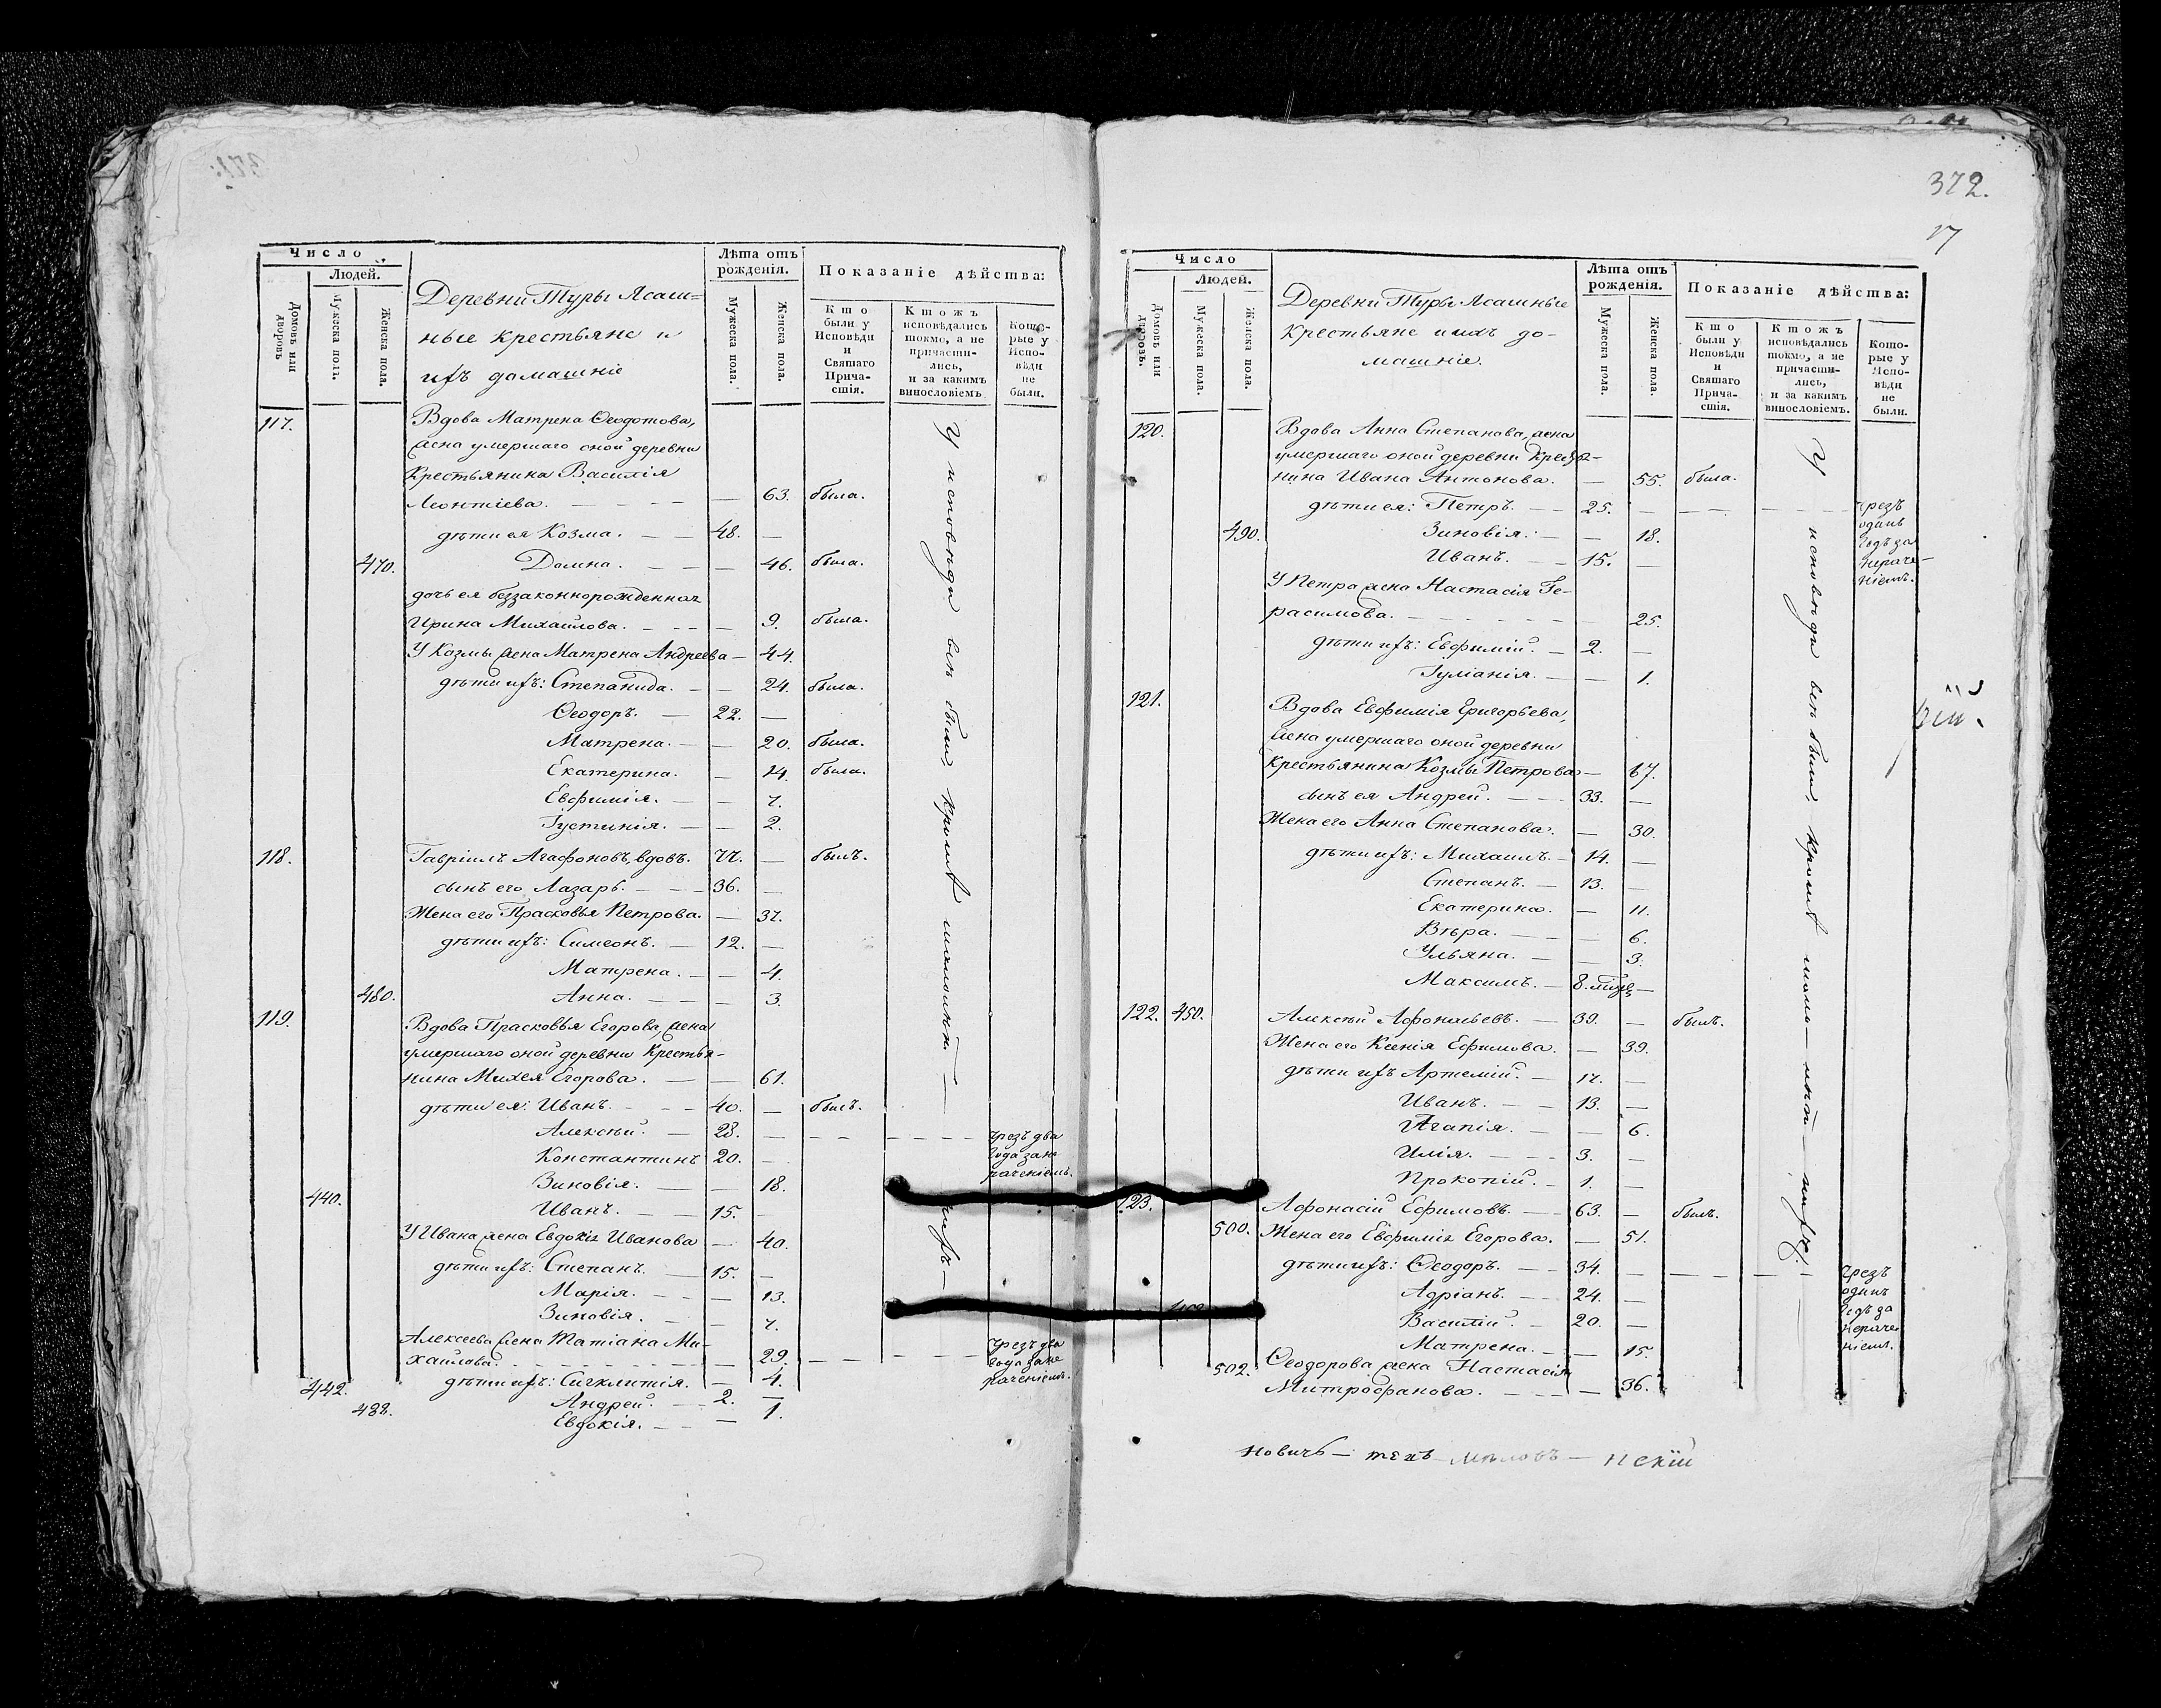 Число
Людей.
Домовъ или дворовъ
Мужеска полъ.
Женска пола.
Деревни Туры Ясаш=
ные крестьяне и
ихъ домашніе
Лѣта отъ рожденія.
Мужеска пола.
Женска пола.
Показаніе дѣйства:
Кто были у Исповѣди и Святаго Прича-стія.
Ктожъ исповѣдались токмо, а не причасти-лись, и за какимъ винословіемъ
Кото-рые у Испо-вѣди не были.
117. Вдова Матрена Ѳеодотова,
жена умершаго оной деревни
Крестьянина Василія
Леонтіева. — 63. была.
дѣти ея Козма. 48. —
470. Домна. — 46. была.
дочь ея беззаконнорожденная
Ирина Михайлова. — 9. была.
У Козмы жена Матрена Андреева — 44.
дѣти ихъ: Степанида. — 24. была.
Ѳеодоръ. 22. —
Матрена. — 20. была.
Екатерина. — 14. была.
Евфимія. — 7.
Іустинія. — 2.
118. Гавріилъ Агафоновъ, вдовъ. 77. — былъ.
сынъ его Лазарь. 36. —
Жена его Прасковья Петрова. — 37.
дѣти ихъ: Симеонъ. 12. —
Матрена. — 4.
480. Анна. — 3.
119. Вдова Прасковья Егорова, жена
умершаго оной деревни Крестья-
нина Михея Егорова. — 61.
дѣти ея: Иванъ. 40. — былъ.
Алексѣй. 28. — чрезъ два
года за не
раченіемъ.
Константинъ 20. —
Зиновія. — 18.
440. Иванъ. 15. —
У Ивана жена Евдокія Иванова — 40.
дѣти ихъ: Степанъ. 15. —
Марія. — 13.
Зиновія. — 7.
Алексеева жена Татіана Ми-
хайлова. — 29. чрезъ два
года за не
раченіемъ.
дѣти ихъ: Сигклитія. — 4.
442. Андрей. 2. —
488. Евдокія. — 1.
У исповѣди всѣ были, кромѣ
372.
17
Число
Людей.
Домовъ или дворовъ.
Мужеска пола.
Женска пола.
Деревни Туры Ясашные
Крестьяне и ихъ до-
машніе.
Лѣта отъ рожденія.
Мужеска пола.
Женска пола.
Показаніе дѣйства:
Кто были у Исповѣди и Святаго Прича-стія.
Ктожъ исповѣдались токмо, а не причасти-лись, и за какимъ винословіемъ.
Кото-рые у Испо-вѣди не были.
120. Вдова Анна Степанова, жена
умершаго оной деревни Крестья-
нина Ивана Антонова. — 55. была.
дѣти ея: Петръ. 25. — чрезъ
одинъ
годъ за
нераче-
ніемъ.
490. Зиновія. — 18.
Иванъ. 15. —
У Петра жена Настасія Ге-
расимова. — 25.
дѣти ихъ: Евфимій. 2. —
Іуліанія. — 1.
121. Вдова Евфимія Григорьева,
жена умершаго оной деревни
Крестьянина Козмы Петрова — 67.
сынъ ея Андрей. 33. —
Жена его Анна Степанова. — 30.
дѣти ихъ: Михаилъ. 14. —
Степанъ. 13. —
Екатерина. — 11.
Вѣра. — 6.
Ульяна. — 3.
Максимъ. 8. мѣсяц —
122. 450. Алексѣй Афонасьевъ. 39. — былъ.
Жена его Ксенія Ефимова. — 39.
дѣти ихъ Артемій. 17. —
Иванъ. 13. —
Агапія. — 6.
Илія. 3. —
Прокопій. 1. —
123. Афонасій Ефимовъ. 63. — былъ.
500. Жена его Евфимія Егорова. — 51.
дѣти ихъ: Ѳеодоръ. 34. — чрезъ
одинъ
годъ за
нераче
ніемъ.
Адріанъ. 24. —
Василій. 20. —
Матрена. — 15.
502. Ѳеодорова жена Настасія
Митрофанова. — 36.
У исповѣди всѣ были, кромѣ
новичь —